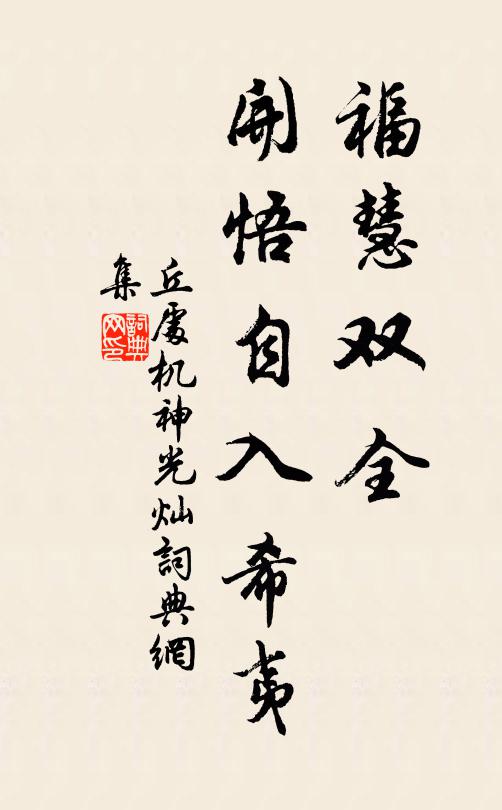 福慧双全
開悟自入希夷
丘處机神光灿詞典網
集
詞典
网印